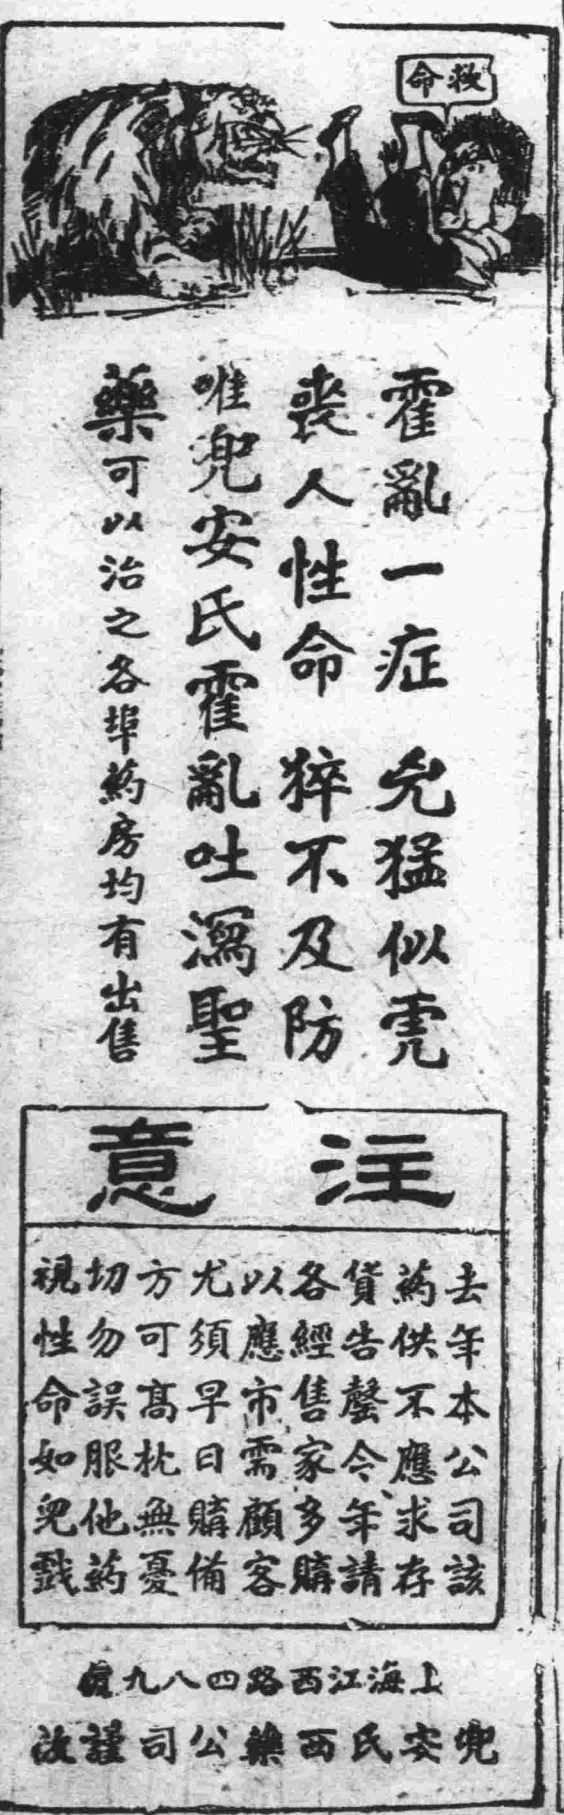 救命
霍亂一症　兇猛似虎
喪人性命　猝不及防
唯兜安氏霍亂吐瀉聖
藥可以治之各埠葯房均有出售
注意
去年本公司該
葯供不應求存
貨告罄今年請
各經售家多購
以應市需顧客
尤須早日購備
方可高枕無憂
切勿誤服他葯
視性命如兒戲
上海江西路四八九號
兜安氏西藥公司謹啟